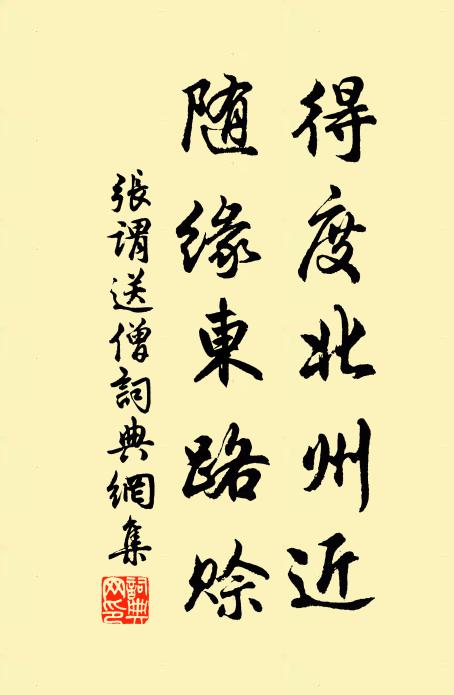 得度北州近
随缘東路賒
張謂送僧詞典網集
詞典
网印